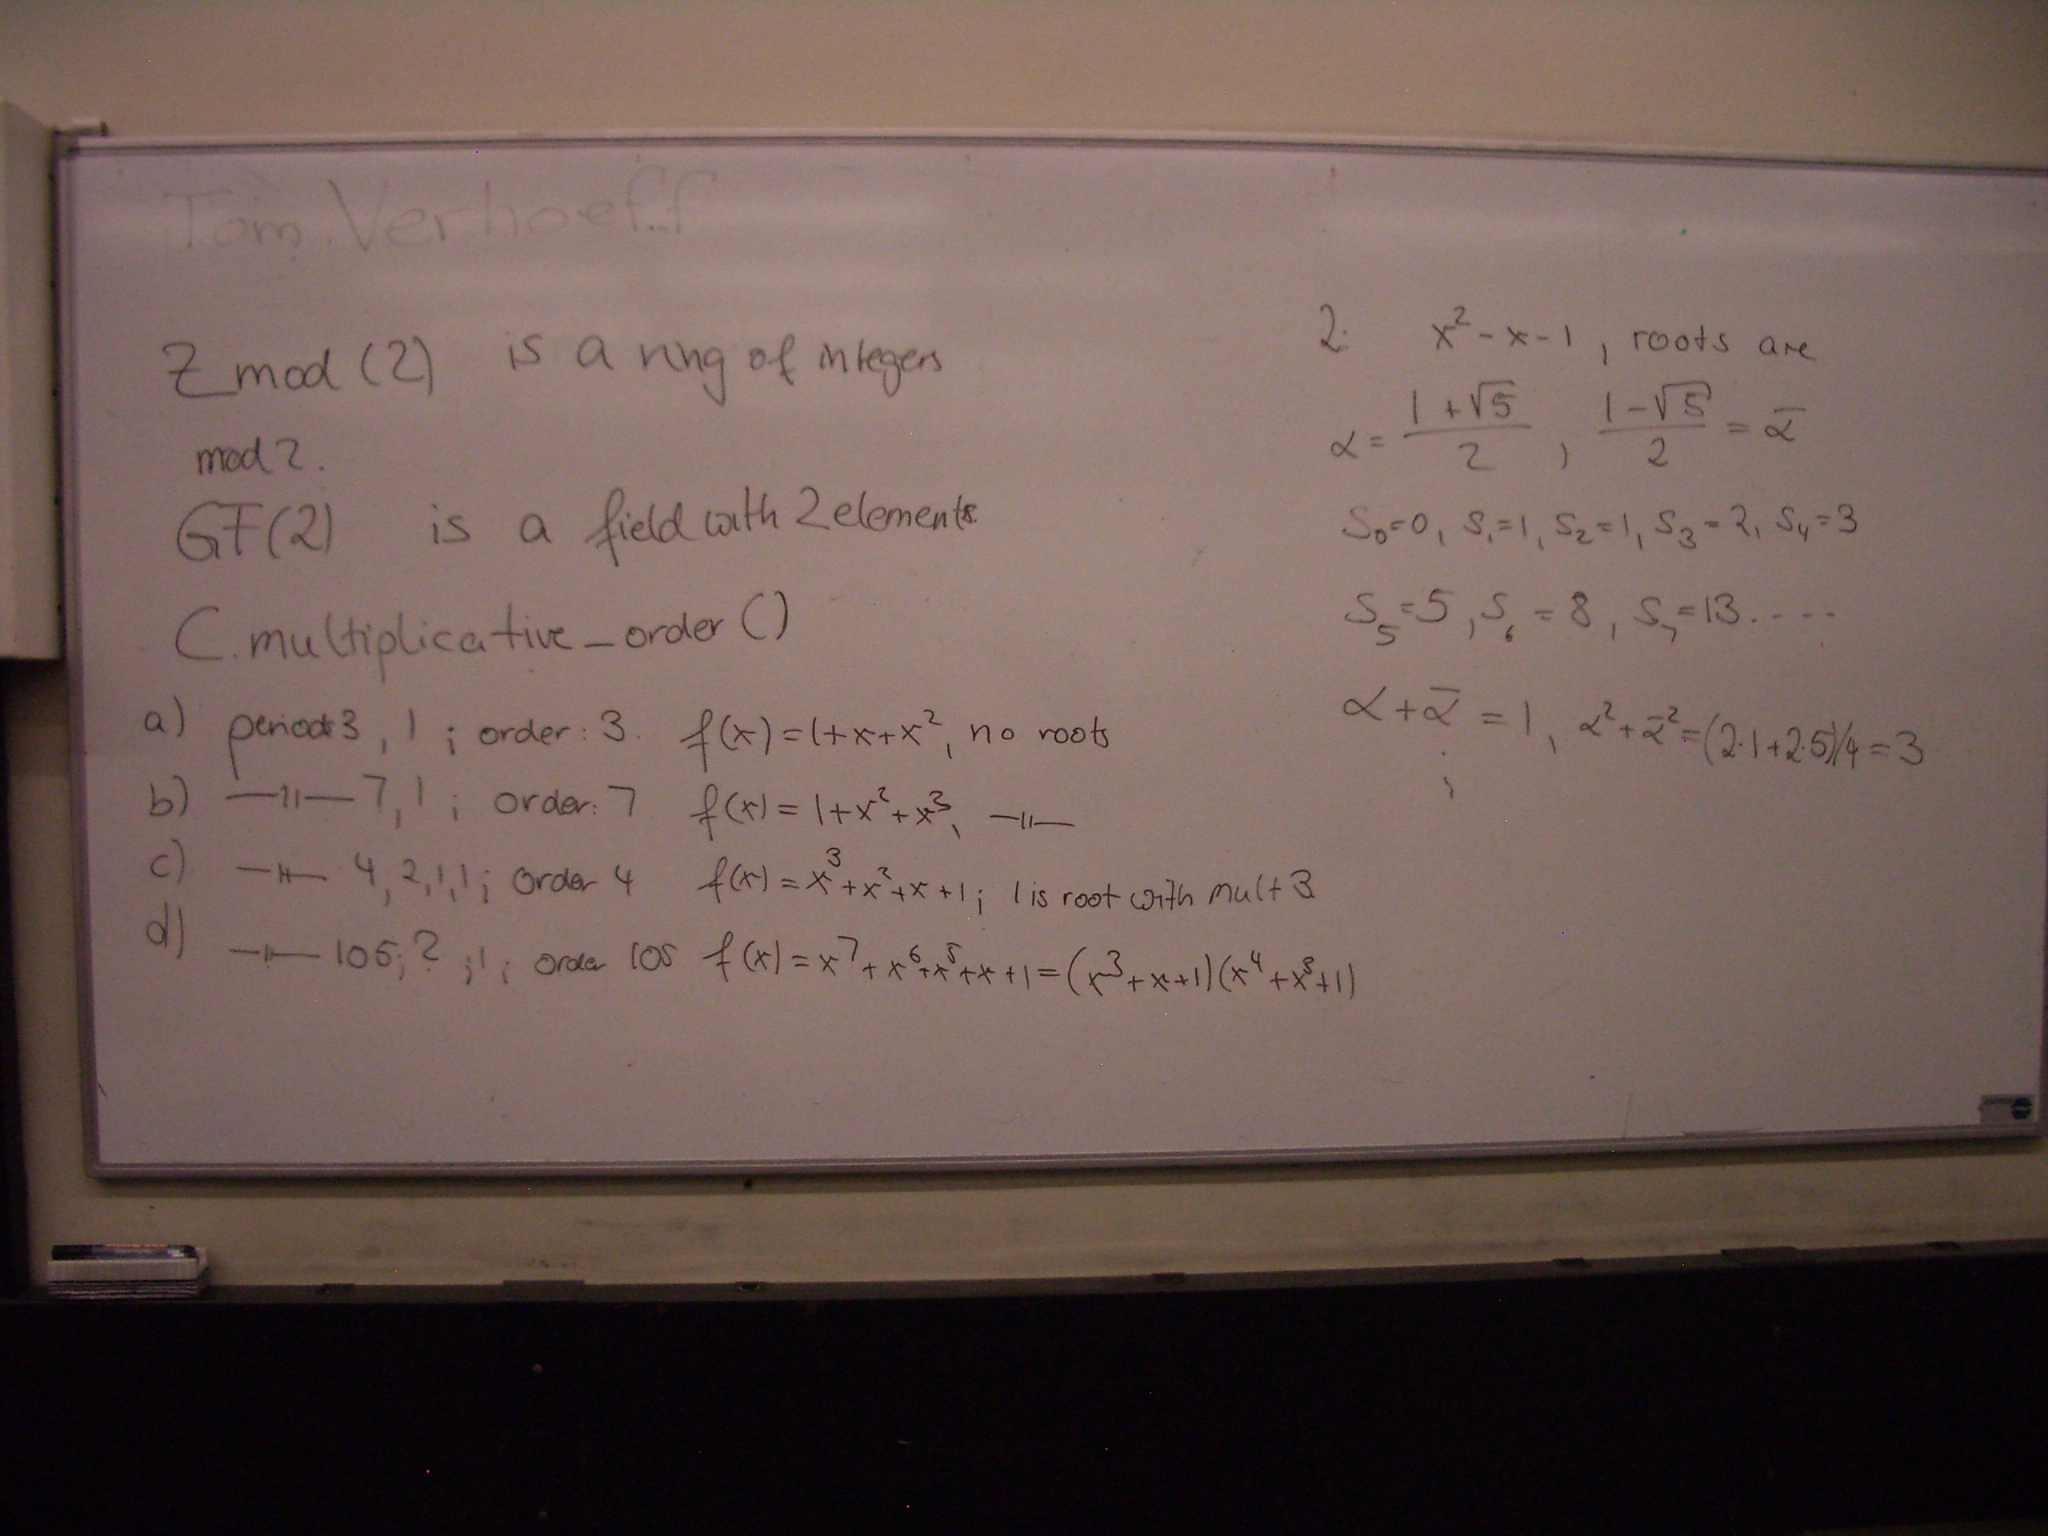 Tom Verhoeff
Zmod(2) is a ring of integers
mod 2.
GF(2) is a field with 2 elements
C.multiplicative_order()
a) period: 3, 1 ; order: 3. f(x) = 1+x+x², no roots
b) —11— 7, 1 ; order: 7 f(x) = 1+x²+x³, —11—
c) —11— 4, 2, 1, 1 ; order 4 f(x) = x³+x²+x+1 ; 1 is root with mult 3
d) —11— 105; ? ; 1 ; order 105 f(x) = x⁷+x⁶+x⁵+x+1 = (x³+x+1)(x⁴+x³+1)
2. x²-x-1, roots are
α = (1+√5)/2 , (1-√5)/2 = ᾱ
S₀=0, S₁=1, S₂=1, S₃=2, S₄=3
S₅=5, S₆=8, S₇=13.....
α+ᾱ = 1, α²+ᾱ²=(2·1+2·5)/4=3
;